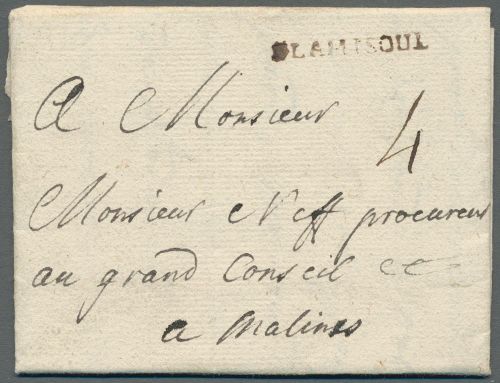 FLAMISOUL
A Monsieur
4
Monsieur Neff procureur
au grand Conseil &c
a malines